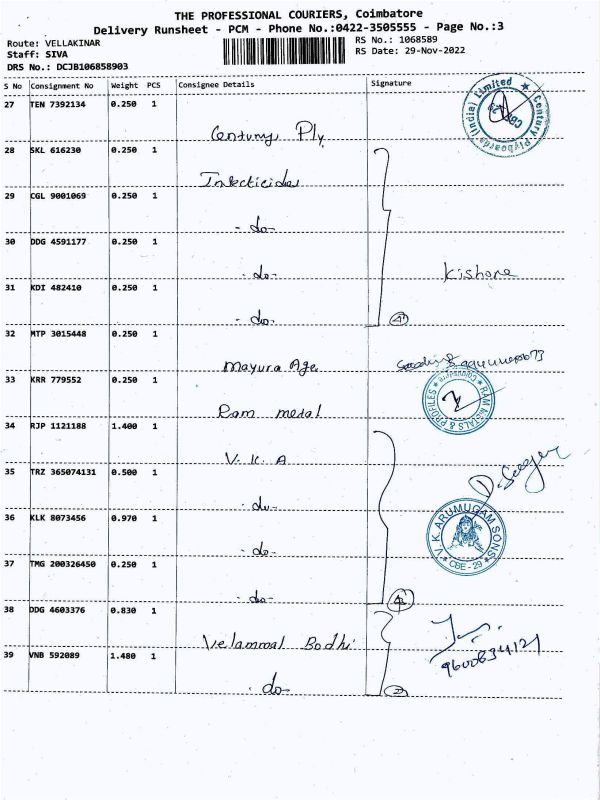 THE PROFESSIONAL COURIERS, Coimbatore
Delivery Runsheet - PCM - Phone No.:0422-3505555 - Page No.:3
Route: VELLAKINAR
Staff: SIVA
DRS No.: DCJB106858903
RS No.: 1068589
RS Date: 29-Nov-2022
S No Consignment No Weight PCS Consignee Details Signature
27 TEN 7392134 0.250 1 Century Ply
Century Plyboards (India) Limited
CBE
28 SKL 616230 0.250 1 Insecticides
29 CGL 9001069 0.250 1 - do-
30 DDG 4591177 0.250 1 - do- Kishore
31 KDI 482410 0.250 1 - do- 4
32 MTP 3015448 0.250 1 Mayura Age
33 KRR 779552 0.250 1 Ram metal
RAM METALS & PROFILES
34 RJP 1121188 1.400 1 V. K. A
35 TRZ 365074131 0.500 1 - do-
36 KLK 8073456 0.970 1 - do-
V. K. ARUMUGAM SONS
CBE - 29
37 TMG 200326450 0.250 1 - do-
38 DDG 4603376 0.830 1 Velammal Bodhi
9600834121
39 VNB 592089 1.480 1 - do- 2